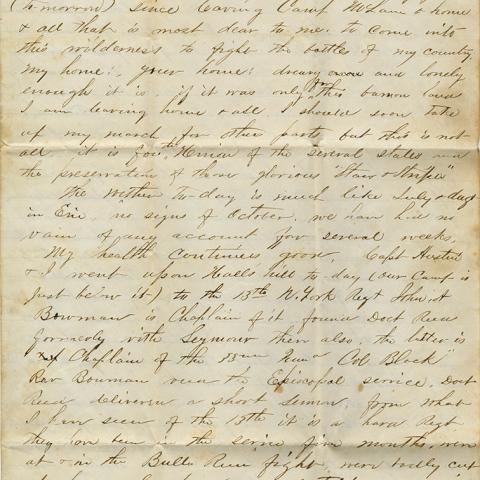 (to-morrow) since leaving Camp McLane & home
& all that is most dear to me. to come into
this wilderness to fight the battles of my country,
my home, your home: dreary and lonely
enough it is. if it was only for this barren land
I am leaving home & all. I should soon take
up my march for other parts, but this is not
all. it is for the Union of the several states and
the preservation of those glorious "Stars & Stripes"
The weather to-day is much like July & dusty
in Erie, no signs of October. we have had no
rain of any account for several weeks.
My health continues good. Capt
& I went upon Halls hill to-day (our Camp is
just below it) to the 13th N. York Regt
Bowman is Chaplain of it. found Doct Reed
formerly with Seymour there also. the latter is
Chaplain of the Col Black"
Rev Bowman read the Episcopal service. Doct
Reed delivered a short sermon. from what
I have seen of the 13th it is a hard Regt.
they have been in the service five months, were
at & in the Bulls Run fight, were badly cut